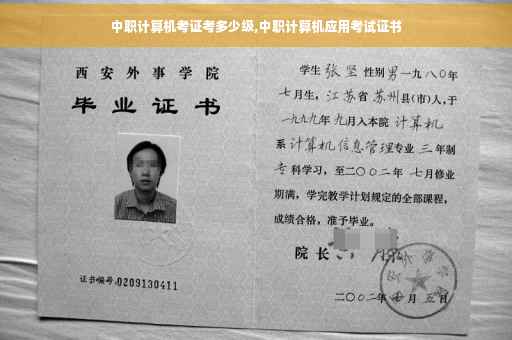 中职计算机考证考多少级,中职计算机应用考试证书
西安外事学院
毕业证书
证书编号:0209130411
学生 张坚 性别男一九八〇年
七月生，江苏省苏州县(市)人,于
一九九九年九月入本院 计算机
系 计算机信息管理专业 三 年制
专科学习，至二〇〇二年 七月修业
期满，学完教学计划规定的全部课程，
成绩合格，准予毕业。
院长
二〇〇二年 月五日